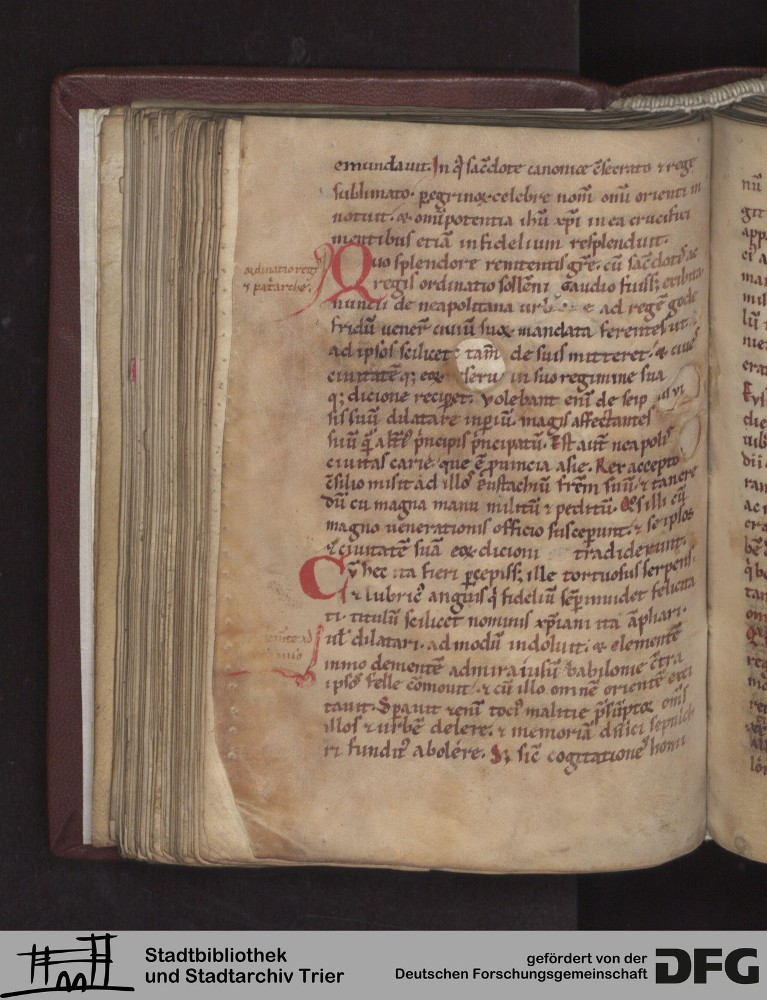 emundauit. In q̇ sac̄dote canonice c̄secrato ⁊ rege
sublimato. peregrinoꝝ celebre nom̄ omū orienti in
notuit. ⁊ om̄ipotentia ih̄u xp̄i in ea crucifixi
mentibus etiā infidelium resplenduit.
ordinatio regis
⁊ pat̄arche.
Quo splendore renitentis gr̄e. cū sac̄dotis ac
regis ordinatio sollēni gaudio fuiss;
nuncii de neapolitana urbe ad regē gode
fridū vener̄ cuiū suoꝝ mandata ferentes ut
ad ipsos scilicet tam̄ de suis mitteret. ⁊ ciuē
ciuitatēq; eoꝝ in suo regimine sua
q; dicione recip̄et. Volebant eni de seip
sis suū dilatare inp̄iū. magis affectantes
suū q̄ alt̄iꝰ p̄ncipis p̄ncipatū. Est aut̄ neapolis
ciuitas carie. que ē puincia asie. Rex accepto
c̄silio misit ad illos Eustachiū fr̄em suū. ⁊ tancre
dū cū magna manu militū ⁊ peditū. Qos illi cū
magno uenerationis officio suscepunt. ⁊ se ipsos
⁊ ciuitatē suā eoꝝ dicioni tradiderunt.
Cū hec ita fieri p̄cepiss; ille tortuosus serpens.
⁊ lubricꝰ anguis q̇ fideliū semp̄ inuidet felicita
ti. titulū scilicet nominis xp̄iani ita āpliari.
uł dilatari. ad modū indoluit. ⁊ elementē
immo dementē admirauisū babilonie c̄tra
ipsos felle cōmouit. ⁊ cū illo omnē orientē exci
tauit. Spauit eni tociꝰ malitie p̄sūptoꝝ om̄s
illos ⁊ urbē delere. ⁊ memoriā d̄nici sepulch
ri funditꝰ abolére. S; sic̄ cogitatione homi
Stadtbibliothek
und Stadtarchiv Trier
gefördert von der
Deutschen Forschungsgemeinschaft
DFG